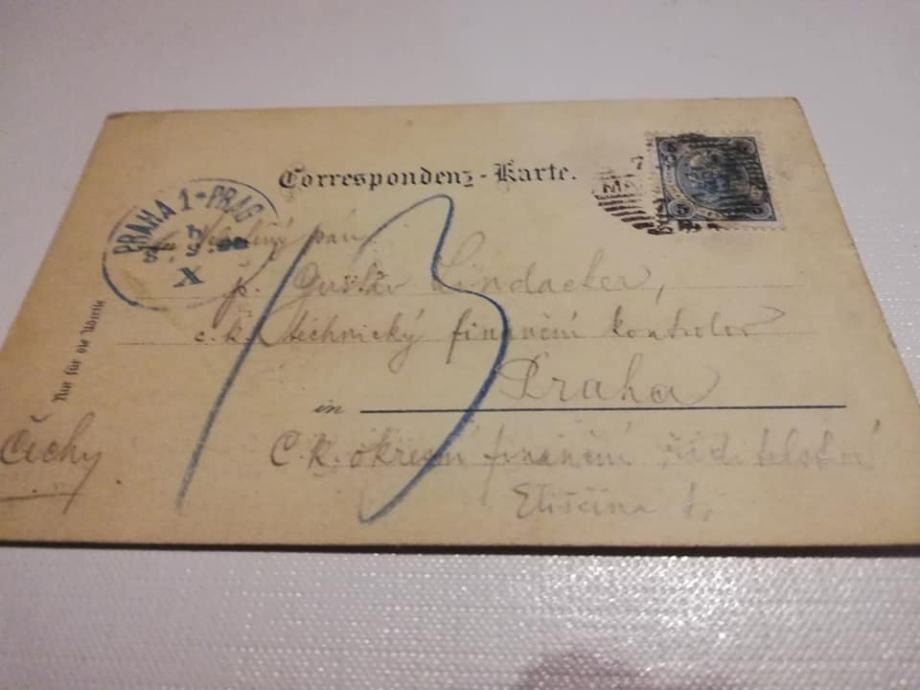 Correspondenz-Karte.
PRAHA 1-PRAG
X
pán
p. Gustav Lindacker,
c.k. technický finanční kontrolor
Praha
in
Nur für die Adresse
Čechy.
C.k. okresní finanční ředitelství
Eliščina t.
13
5
5